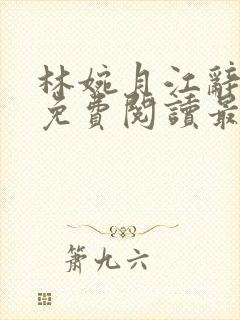 林婉月江辭
免費閱讀最
簫九六